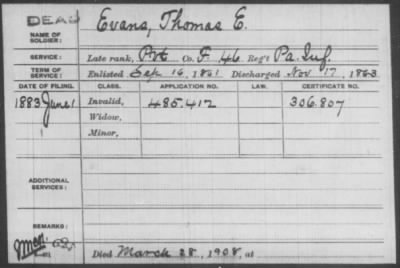 DEAD
NAME OF SOLDIER: Evans, Thomas E.
SERVICE: Late rank, Pvt Co. F 46 Reg't Pa. Inf.
TERM OF SERVICE: Enlisted Sep 16, 1861 Discharged Nov. 17, 1863
DATE OF FILING. CLASS. APPLICATION NO. LAW. CERTIFICATE NO.
1883 June 1 Invalid, 485.412 306.807
Widow,
Minor,
ADDITIONAL SERVICES:
REMARKS:
Died March 28, 1908, at